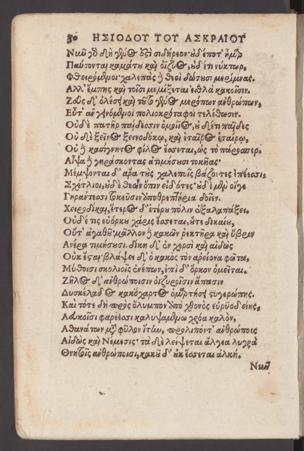 30 ΗΣΙΟΔΟΥ ΤΟΥ ΑΣΚΡΑΙΟΥ
Νῦν γὸ δὴ γένος ὅζὶ σιδήρεον· ὐδέ ποτ' ἦμαρ
Παύσονται καμάτυ καὶ ὀϊζύος, ὐδέ τι νύκτωρ,
Φθειρόμενοι· χαλεπὰς ἢ θεοὶ δώσυσι μερίμνας.
Αλλ' ἔμπης καὶ τοῖσι μεμίξεται ἐσθλὰ κακοῖσιν.
Ζεὺς δ' ὀλέσει καὶ τῦτο γένος μερόπων αὐθρώπων,
Εὖτ' αὐ γενόμενοι πολιοκρόταφοι τελέθωσιν.
Οὐδὲ πατὴρ παίδεσσιν ὁμοίϊος, ὐδέ τι παῖδες
Οὐδὲ ξεῖνος ξεινοδόκῳ, καὶ ἑταῖρος ἑταίρῳ,
Οὐ ἢ κασίγνητος φίλος ἔσεται, ὡς τὸ πάρος περ.
Αἶψα ἢ γηράσκοντας ἀτιμήσυσι τοκῆας·
Μέμψονται δ' ἄρα τὺς χαλεποῖς βάζοντες ἐπέεσσι,
Σχέτλιοι, ὐδὲ θεῶν ὄπιν εἰδότες· ὐδὲ μὲν οἵγε
Γηράντεσσι τοκεῦσιν ἀπὸ θρεπτήρια δοῖεν.
Χειροδίκαι, ἕτερος δ' ἑτέρυ πόλιν ἐξαλαπάξει.
Οὐδέ τις εὐόρκυ χάρις ἔσεται, ὔτε δικαίυ,
Οὔτ' ἀγαθῦ· μᾶλλον ἢ κακῶν ῥεκτῆρα καὶ ὕβριν
Ανέρα τιμήσυσι. δίκη δ' ἐν χερσὶ καὶ αἰδὼς
Οὐκ ἔσαι· βλάψει δ' ὁ κακὸς τὸν ἀρείονα φῶτα,
Μύθοισι σκολιοῖς ἐνέπων, ἐπὶ δ' ὅρκον ὀμεῖται.
Ζῆλος δ' αὐθρώποισιν ὀϊζυροῖσιν ἅπασιν
Δυσκέλαδος κακόχαρτος ὁμαρτήσει στυγερώπης.
Καὶ τότε δὴ πρὸς ὄλυμπον ἀπὸ χθονὸς εὐρυοδείης,
Λευκοῖσι φαρέεσσι καλυψαμένω χρόα καλὸν,
Αθανάτων μετὰ φῦλον ἴτην, προλιπόντ' αὐθρώπυς
Αἰδὼς καὶ Νέμεσις· τὰ δὲ λείψεται ἄλγεα λυγρὰ
Θνητοῖς αὐθρώποισι, κακῦ δ' ὐκ ἔσεται ἀλκή.
Νῦν